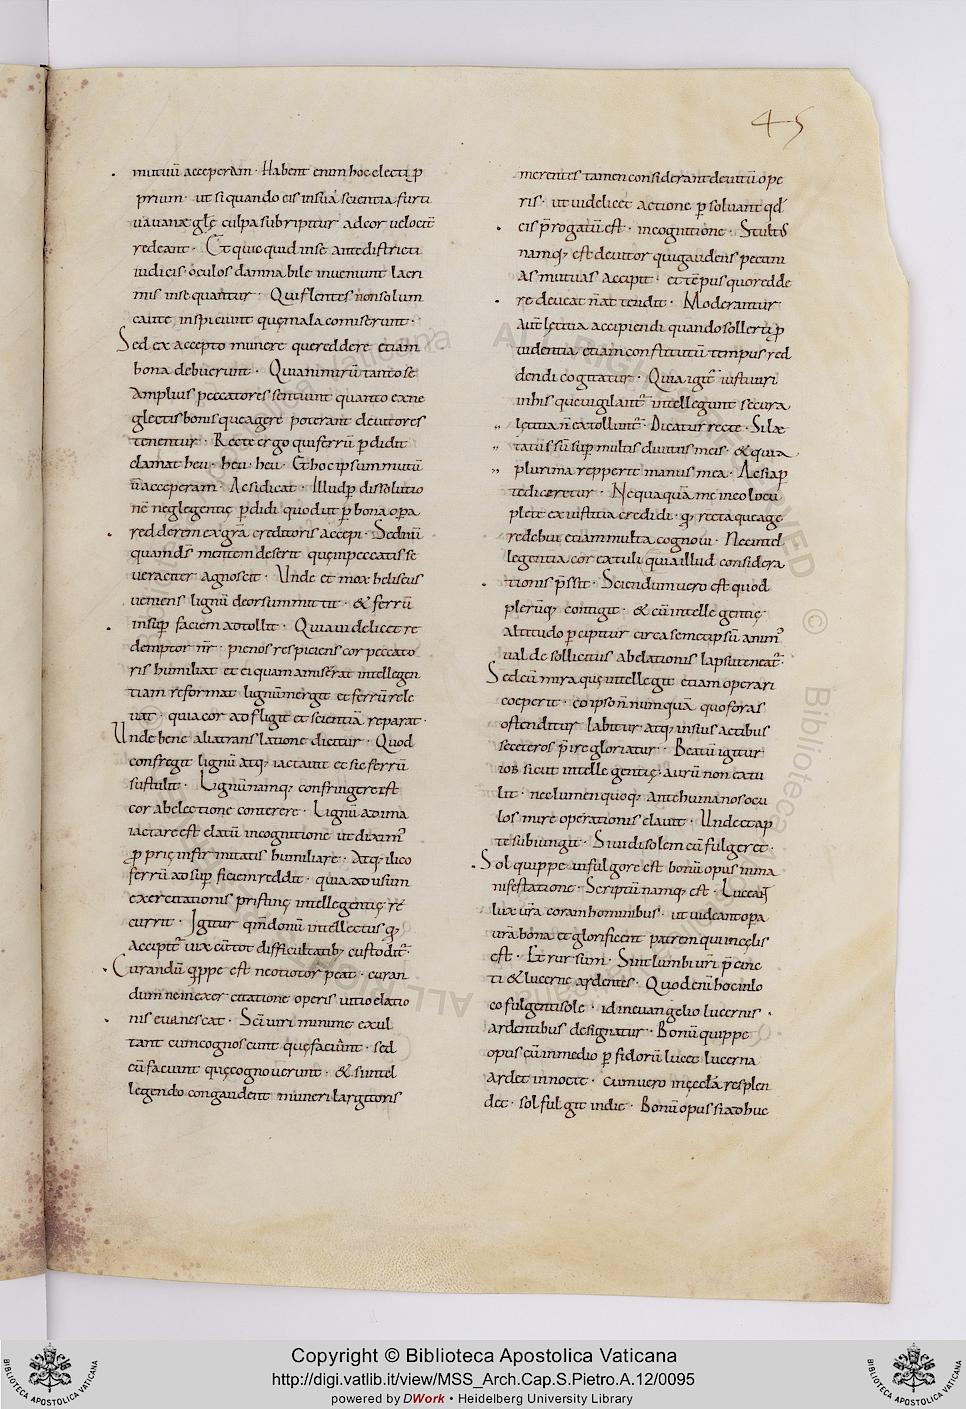 45
mutuū acceperam · Habent enim hoc electi ꝓ
prium · ut si quando eis in suā scientia furti
ua uanae gl̄ę culpa subripitur ad cor uelocit̄
redeant · Et quicquid in se ante districti
iudicis oculos damnabile inueniunt lacri
mis insequantur · Qui flentes non solum
caute inspiciunt quę mala comiserunt ·
Sed ex accepto munere que reddere etiam
bona debuerunt · Quia nimirū tanto se
amplius peccatores sentiunt quanto ex ne
glectis bonis que agere poterant deuitores
tenentur · Recte ergo qui ferrū ꝑdidit
clamat heu · heu · heu · Et hoc ipsum mutū
ū acceperam · Ac si dicat · Illud ꝑ dissolutio
nē neglegentię ꝑdidi quod ut ꝑ bona oꝑa
redderem ex gr̄a creditoris accepi · Sed nū
quam dn̄s mentem deserit quę in peccatis se
ueraciter agnoscit · Unde et mox heliseus
ueniens lignū deorsum mittit · & ferrū
in suꝑ faciem adtollit · Quia uidelicet re
demptor nr̄ · pie nos respiciens cor peccato
ris humiliat et ei quam amiserat intellegen
tiam reformat lignū mergit et ferrū rele
uat · quia cor adfligit et scientiā reparat ·
Unde bene alia translatione dicitur · Quod
confregit lignū atq; iactauit et sic ferrū
sustulit · Lignū namq; confringere est
cor ab electione conterere · Lignū ad ima
iactare est elatū in cognitione ut diximꝰ
ꝓprię infirmitatis humiliare · Atq; ilico
ferrū ad suꝑficiem reddit · quia ad usum
exercitationis pristinę intellegentię re
currit · Igitur qm̄ donū intellectus q;
accipit̄ uix cū tot difficultatib; custodit̄ ·
Curandū quippe est ne otio torpeat · curan
dum ne in exercitatione operis uitio elatio
nis euanescat · Sc̄i uiri minime exul
tant cum cognoscunt quę faciunt · sed
cū faciunt quę cognouerunt · & si intel
legendo congaudent muneri largitoris
merentes tamen considerant deuitū ope
ris · ut uidelicet actione ꝑsoluant qd̄
eis p̄rogatū est · in cognitione · Stultꝰ
namq; est deuitor qui gaudens pecuni
as mutuas accipit · et tēpus quo redde
re deueat n̄ attendit · Moderantur
aut̄ lętitia accipiendi quando sollerti ꝓ
uidentia etiam constitutū tempus red
dendi cogitatur · Quia igit̄ iusti uiri
in his que uigilant̄ intellegunt secura
lętitia n̄ extollunt̄ · Dicatur recte · Si læ
tatus sū suꝑ multis diuitiis meis · & quia
plurima repperit manus mea · Ac si aꝑ
te diceretur · Nequaquā me in eo locu
plete ex iustitia credidi · q; recta que age
re debui etiam multa cognoui · Nec intel
legentia cor extuli quia illud considera
tionis p̄ssit · Sciendum uero est quod
plerūq; contigit · & cū intellegentię
altitudo ꝑcipitur circa semetipsū animꝰ
ualde sollicitus ab elationis lapsu teneat̄ ·
Sed cū mira quę intellegit etiam operari
coeperit · eo ipso n̄numquā quo foras
ostenditur labitur atq; in suis actibus
se ceteros p̄ire gloriatur · Beatū igitur
iob sicut intellegentię aurū non extu
lit · nec lumen quoq; ante humanos ocu
los mire operationis elauit · Unde et ap
te subiungit · Si uidi solem cū fulgeret ·
Sol quippe in fulgore est bonū opus in ma
nifestatione · Scriptū namq; est · Luceat
lux ur̄a coram hominibus · ut uideant oꝑa
ur̄a bona et glorificent patrem qui in cęlis
est · Et rursum · Sint lumbi ur̄i p̄cinc
ti & lucerne ardentes · Quod enī hoc in lo
co fulgenti sole · id in euangelio lucernis ·
ardentibus designatur · Bonū quippe
opus cū in medio ꝑfidorū lucet lucerna
ardet in nocte · cum uero in ęccla resplen
det · sol fulgit in die · Bonū opus si adhuc
Copyright © Biblioteca Apostolica Vaticana
http://digi.vatlib.it/view/MSS_Arch.Cap.S.Pietro.A.12/0095
powered by DWork • Heidelberg University Library